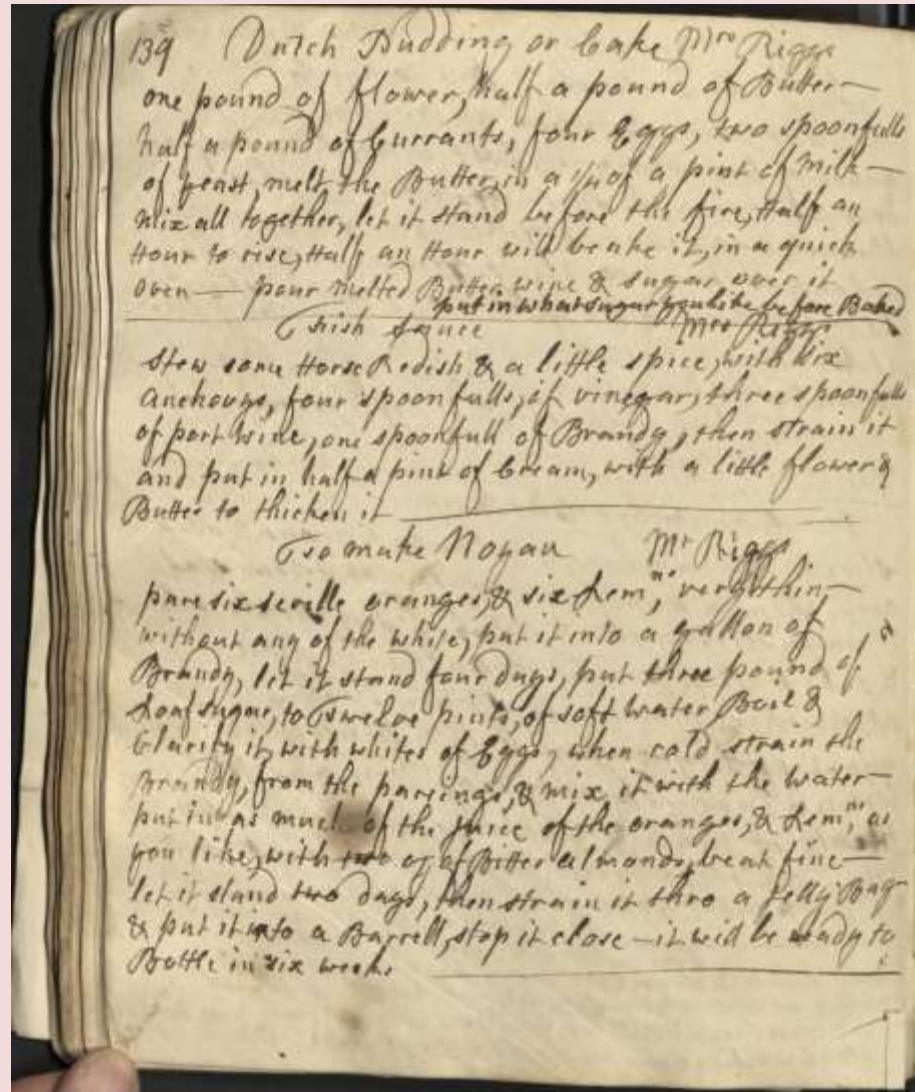 139 Dutch Pudding or Cake Mrs Riggs
one pound of flower, half a pound of Butter—
half a pound of Currants, four Eggs, two spoonfulls
of yeast, melt the Butter, in a 1/4 of a pint of Milk—
mix all together, let it stand before the fire, Half an
Hour to rise, Half an Hour will beake it, in a quick
oven— pour melted Butter wine & sugar over it
put in what sugar you like before Baked
Fish Sauce Mrs Riggs
Stew some Horse Redish & a little spice, with six
Anchovys, four spoonfulls, of vinegar, three spoonfulls
of port wine, one spoonfull of Brandy, then strain it
and put in half a pint of Cream, with a little flower &
Butter to thicken it
To make Noyau Mr Riggs
pare six seville oranges, & six Lemns, very thin—
without any of the white, put it into a gallon of
Brandy, let it stand four days, put three pound of
Loaf sugar, to Twelve pints, of soft water Boil &
Clarify it, with whites of Eggs, when cold strain the
Brandy, from the pareings, & mix it with the water—
put in as much of the juice of the oranges, & Lemns, as
you like, with two oz of Bitter almonds, beat fine—
let it stand two days, then strain it thro a Jelly Bag
& put it into a Barrell, stop it close— it will be ready to
Bottle in six weeks